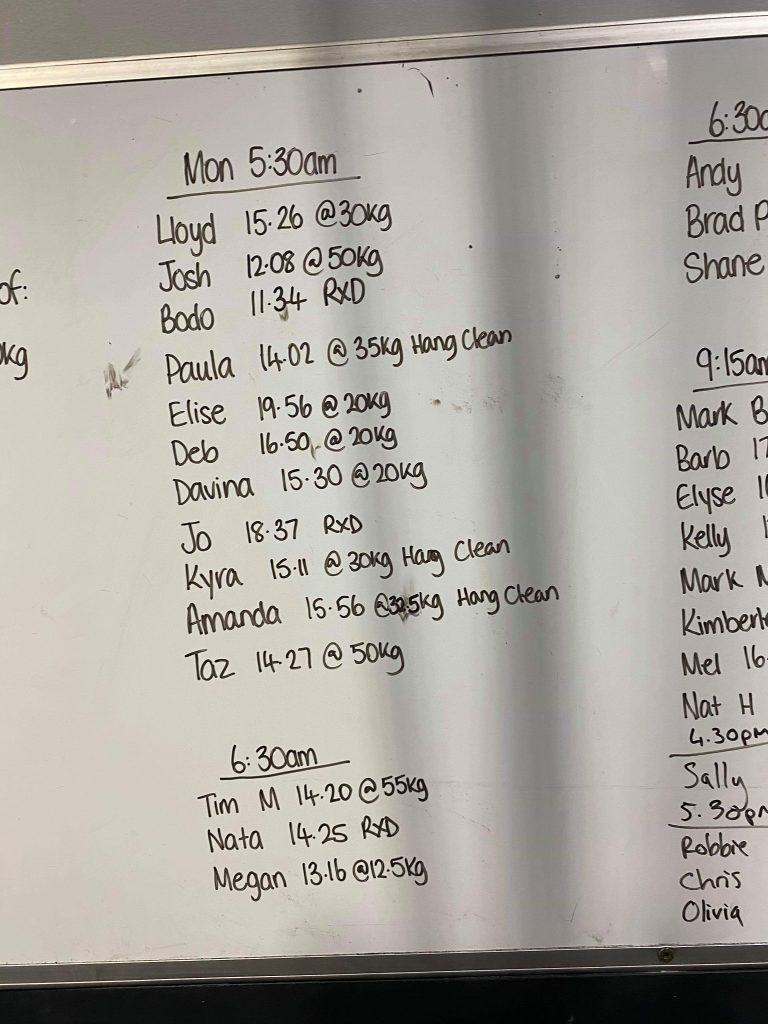 of:
kg
Mon 5:30am
Lloyd 15.26 @30kg
Josh 12.08 @50kg
Bodo 11.34 RXD
Paula 14.02 @ 35kg Hang Clean
Elise 19.56 @ 20kg
Deb 16.50 @ 20kg
Davina 15.30 @20kg
Jo 18.37 RXD
Kyra 15.11 @ 30kg Hang Clean
Amanda 15.56 @32.5kg Hang Clean
Taz 14.27 @ 50kg
6:30am
Tim M 14.20 @55kg
Nata 14.25 RXD
Megan 13.16 @12.5kg
6:30a
Andy
Brad P
Shane
9:15am
Mark B
Barb 17
Elyse
Kelly
Mark
Mel 16.
Nat H
4.30pm
Sally
5.30pm
Robbie
Chris
Olivia